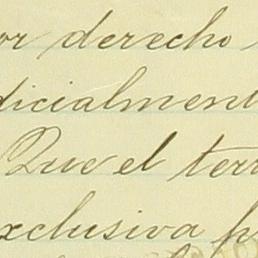 or derecho
dicialment
Que el terr
xclusiva p